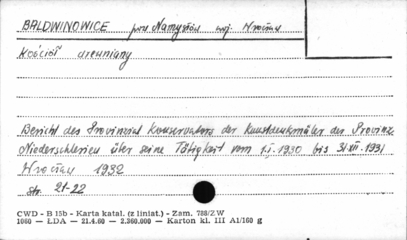 BALDWINOWICE pow. Namysłów woj. Wrocław
Kościół drewniany
Bericht des Provinzial Konservators der Kunstdenkmäler der Provinz
Niederschlesien über seine Tätigkeit vom 1.I.1930 bis 31.XII.1931
Wrocław 1932
str. 21-22
CWD - B 15b - Karta katal. (z liniat.) - Zam. 788/ZW
1060 — LDA — 21.4.60 — 2.360.000 — Karton kl. III A1/160 g